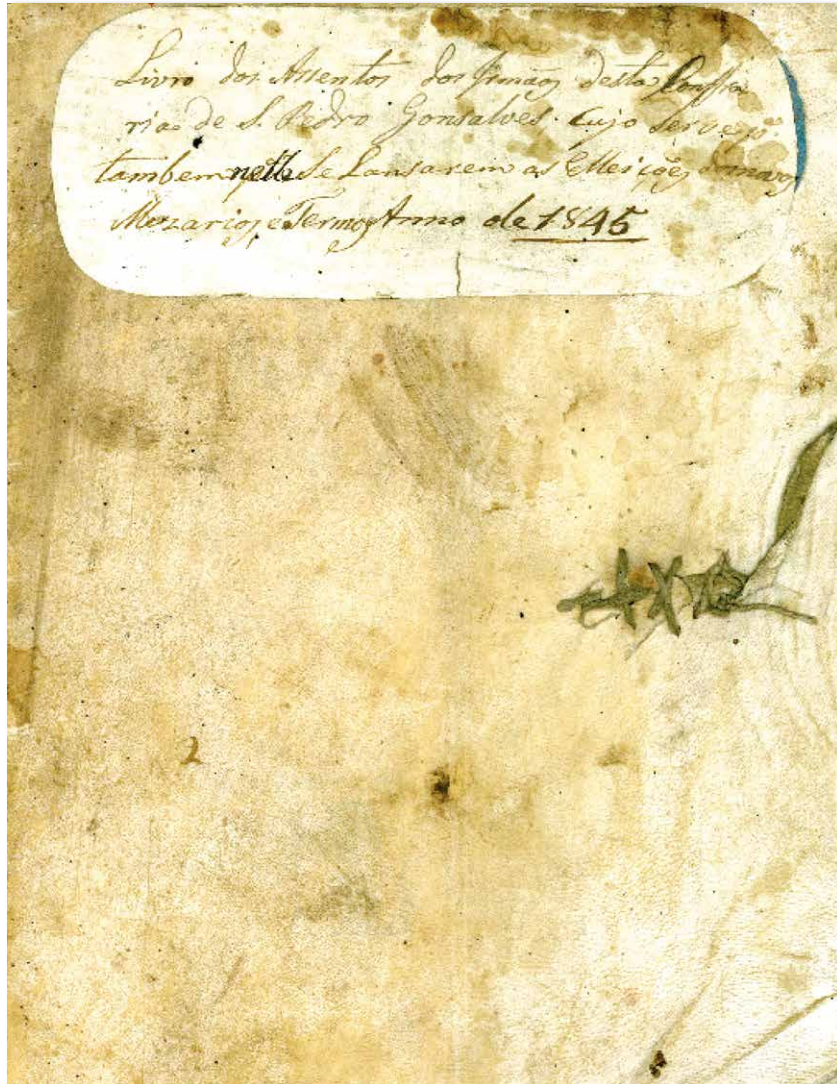 Livro dos Assentos dos Irmãos desta Confra
ria de S. Pedro Gonsalves. Cujo serve p.ª
tambem nelle se Lansarem as Elleições
Mezarios, e Termos Anno de 1845
2